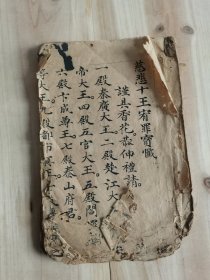 慈悲十王宥罪寶懺
謹具香花恭伸禮請
一殿秦廣大王二殿楚江大
帝大王四殿五官大王五殿閻
六殿卞成尊王七殿泰山府君
大王九殿都市